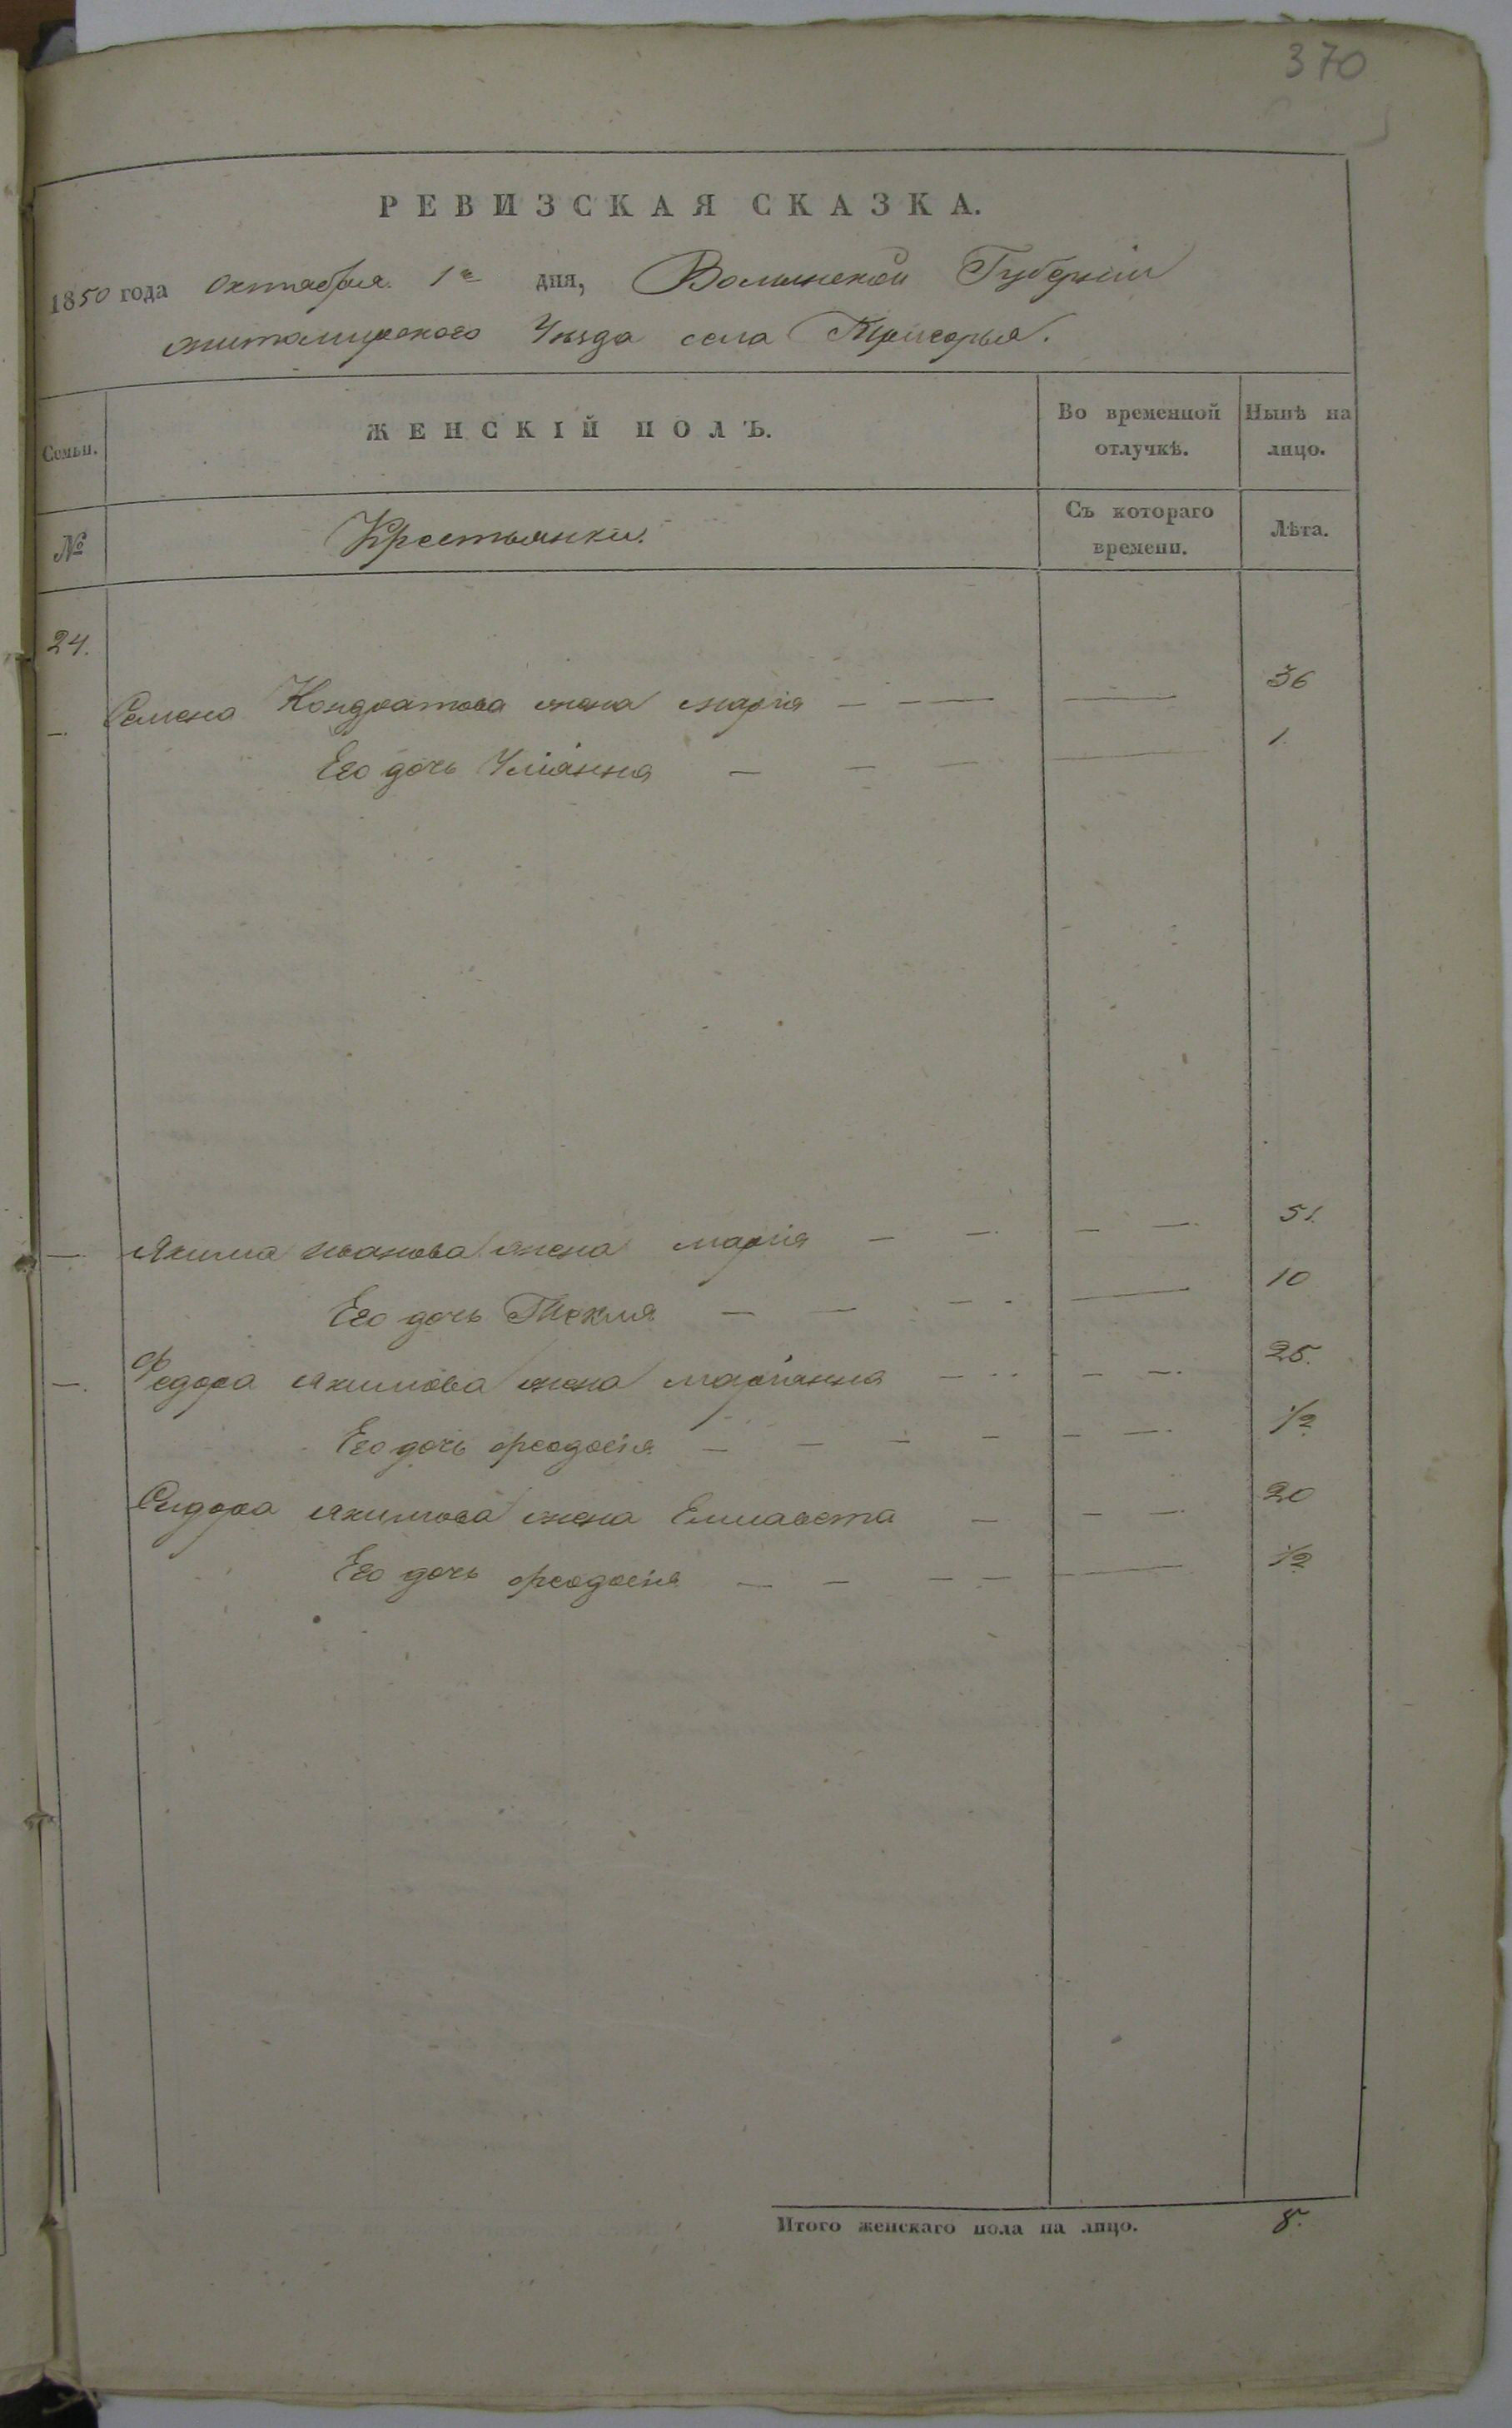 370
РЕВИЗСКАЯ СКАЗКА.
1850 года Октября 1го дня, Волынской Губерніи
житомирского Уезда села Тригорья.
Семьи. ЖЕНСКІЙ ПОЛЪ. Во временной отлучкѣ. Нынѣ на лицо.
№ Крестьянки. Съ котораго времени. Лѣта.
24.
—. Семена Кондратова жена марія — — — — 36
Его дочь Уліанна — — — — 1.
— Якима иванова жена марія — — — — 51.
Его дочь Текля — — — - — 10
—. Федора якимова жена маріанна — - - — —. 25.
Его дочь феодосія — — — — — —. 1/2
Сидора якимова жена Елисавета — — — 20
Его дочь феодосія — — — — — 1/2
Итого женскаго пола на лицо. 8.